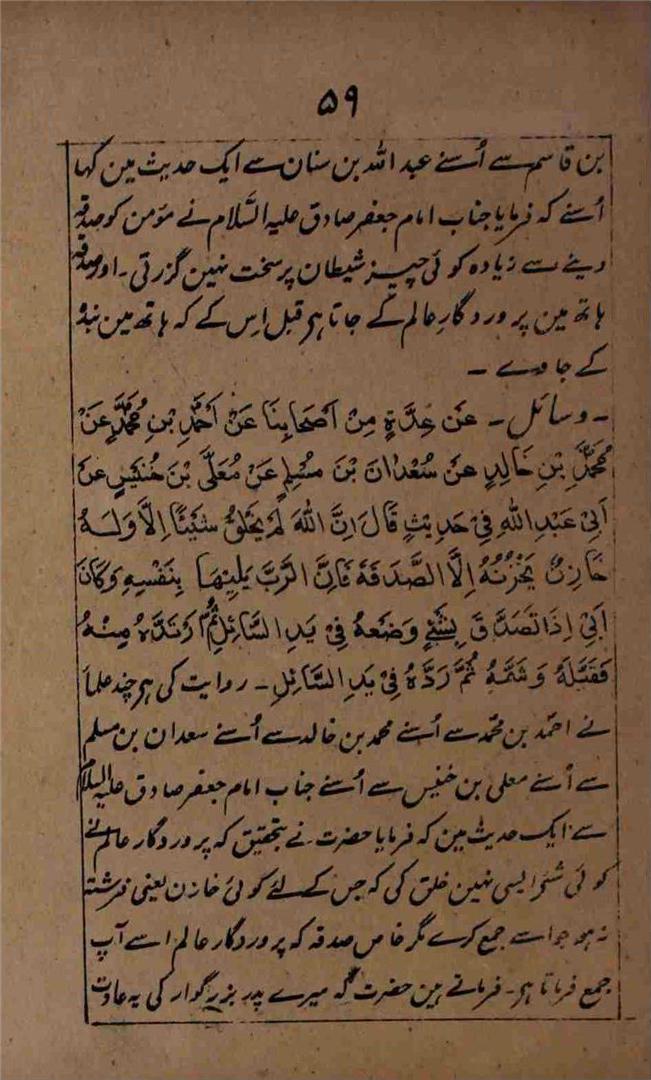 ۵۹
بن قاسم سے اُسنے عبد اللہ بن سنان سے ایک حدیث مین کہا
اُسنے کہ فرمایا جناب امام جعفر صادق علیہ السَّلام نے مؤمن کو صدقہ
دینے سے زیادہ کوئی چیز شیطان پر سخت نہین گزرتی ۔ اور صدقہ
ہاتھ مین پروردگارِ عالم کے جاتا ہر قبل اِس کے کہ ہاتھ مین بندہ
کے جاوے ۔
۔ وسائل ۔ عَن عِدَّةٍ مِنْ اَصْحَابِنَا عَنْ اَحْمَدَ بْنِ مُحَمَّدٍ عَنْ
مُحَمَّدِ بْنِ خَالِدٍ عَنْ سَعْدَانَ بْنَ مُسْلِمٍ عَنْ مُعَلَّى بْنَ خُنَيْسٍ عَنْ
اَبِيْ عَبْدِ اللهِ فِيْ حَدِيْثٍ قَالَ اِنَّ اللهَ لَمْ يَخْلُقْ شَيْئًا اِلَّا وَلَهُ
خَازِنٌ يَخْزُنُهُ اِلَّا الصَّدَقَةَ فَاِنَّ الرَّبَّ يَلِيْهَا بِنَفْسِهِ وَكَانَ
اَبِيْ اِذَا تَصَدَّقَ بِشَيْءٍ وَضَعَهُ فِيْ يَدِ السَّائِلِ ثُمَّ ارْتَدَّهُ مِنْهُ
فَقَبَّلَهُ وَشَمَّهُ ثُمَّ رَدَّهُ فِيْ يَدِ السَّائِلِ ۔ روایت کی ہر چند علما
نے احمد بن محمّد سے اُسنے محمد بن خالد سے اُسنے سعدان بن مسلم
سے اُسنے معلی بن خنیس سے اُسنے جناب امام جعفر صادق علیہ السلام
سے ایک حدیث مین کہ فرمایا حضرت نے بتحقیق کہ پروردگار عالم نے
کوئی شئ ایسی نہین خلق کی کہ جس کے لئے کوئی خازن یعنی فرشتہ
نہ ہو جو اسے جمع کرے مگر خاص صدقہ کہ پروردگار عالم اسے آپ
جمع فرماتا ہر ۔ فرماتے ہین حضرت کہ میرے پدر بزرگوار کی یہ عادت